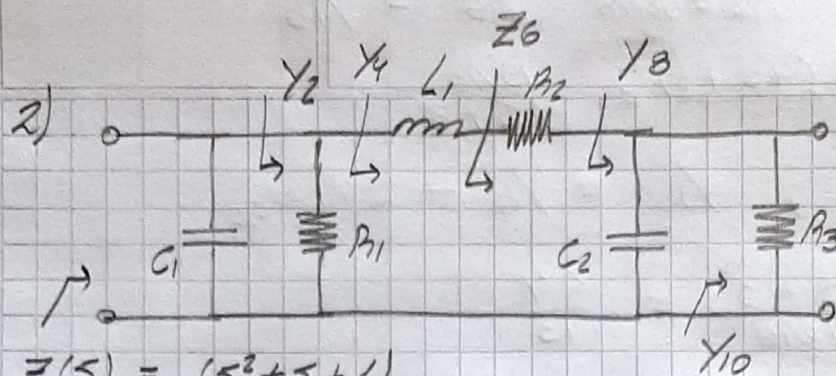 2)
Y2 Y4 L1 Z6 R2 Y8
C1 R1 C2 R3
Y10
Z(S) = (S²+S+1)